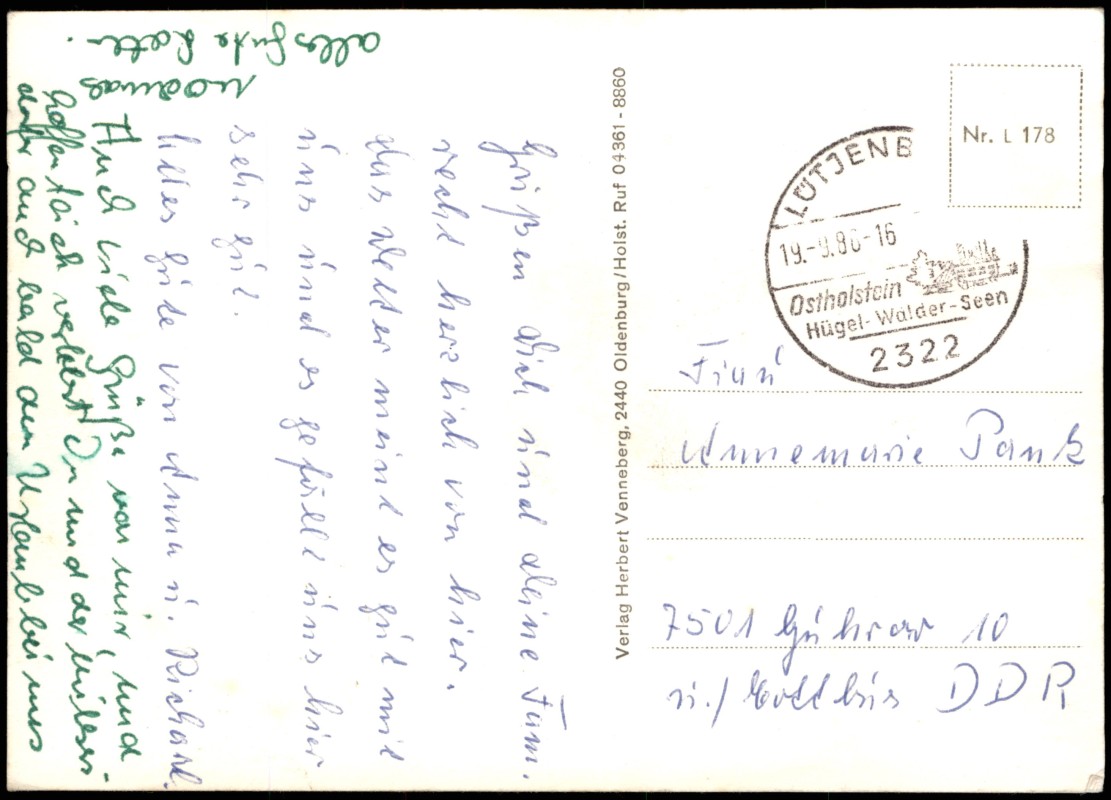 Grüßen dich und deine Fam.
recht herzlich von hier.
das Wetter meint es gut mit
uns und es gefällt uns hier
sehr gut.
Alles gute von Anna u. Richard.
Auch viele Grüße von mir, und
hoffentlich verlebst Du und der
auch bald den Urlaub bei uns
nochmas
alles Gute
Verlag Herbert Venneberg, 2440 Oldenburg/Holst. Ruf 04361 - 8860
Nr. L 178
LÜTJENB
19.-9.86-16
Ostholstein
Hügel-Wälder-Seen
2322
Frau
Annemarie Pank
7501 Guhrow 10
ü./ Cottbus DDR